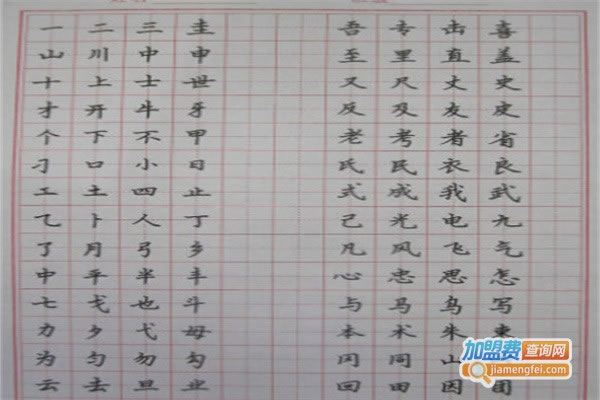 一 二 三 圭 吾 专 击 喜
山 川 中 申 至 里 直 盖
十 上 士 世 又 尺 丈 史
才 开 牛 牙 反 及 友 皮
个 下 不 甲 老 考 者 省
刁 口 小 日 氏 民 衣 良
工 土 四 止 式 成 我 武
乙 卜 人 丁 己 光 电 九
了 月 弓 乡 凡 风 飞 气
中 平 半 丰 心 忠 思 怎
七 戈 也 斗 与 马 乌 写
力 夕 弋 母 本 术 朱 束
为 勺 勿 勾 冈 同 山
云 去 旦 业 回 田 因 团
加盟费查询网
jiamengfei.com